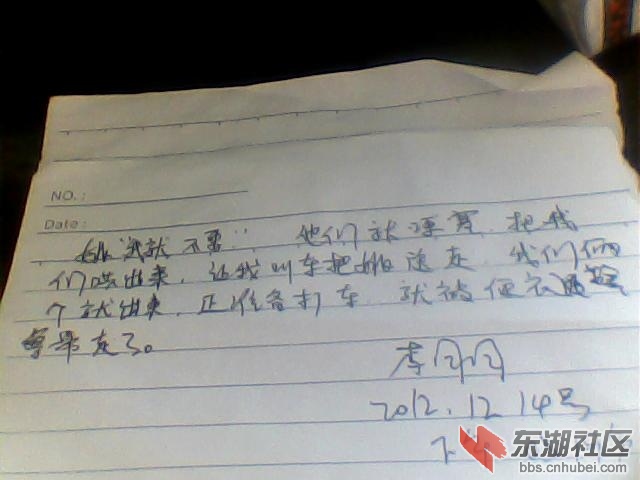 NO.:
Date:
她说就不要" 他们就 把我
们哄出来,让我叫车把她送走,我们俩
个就出来,正准备打车 就被便衣
带走了。
李
2012.12 14号
下午
东湖社区
bbs.cnhubei.com